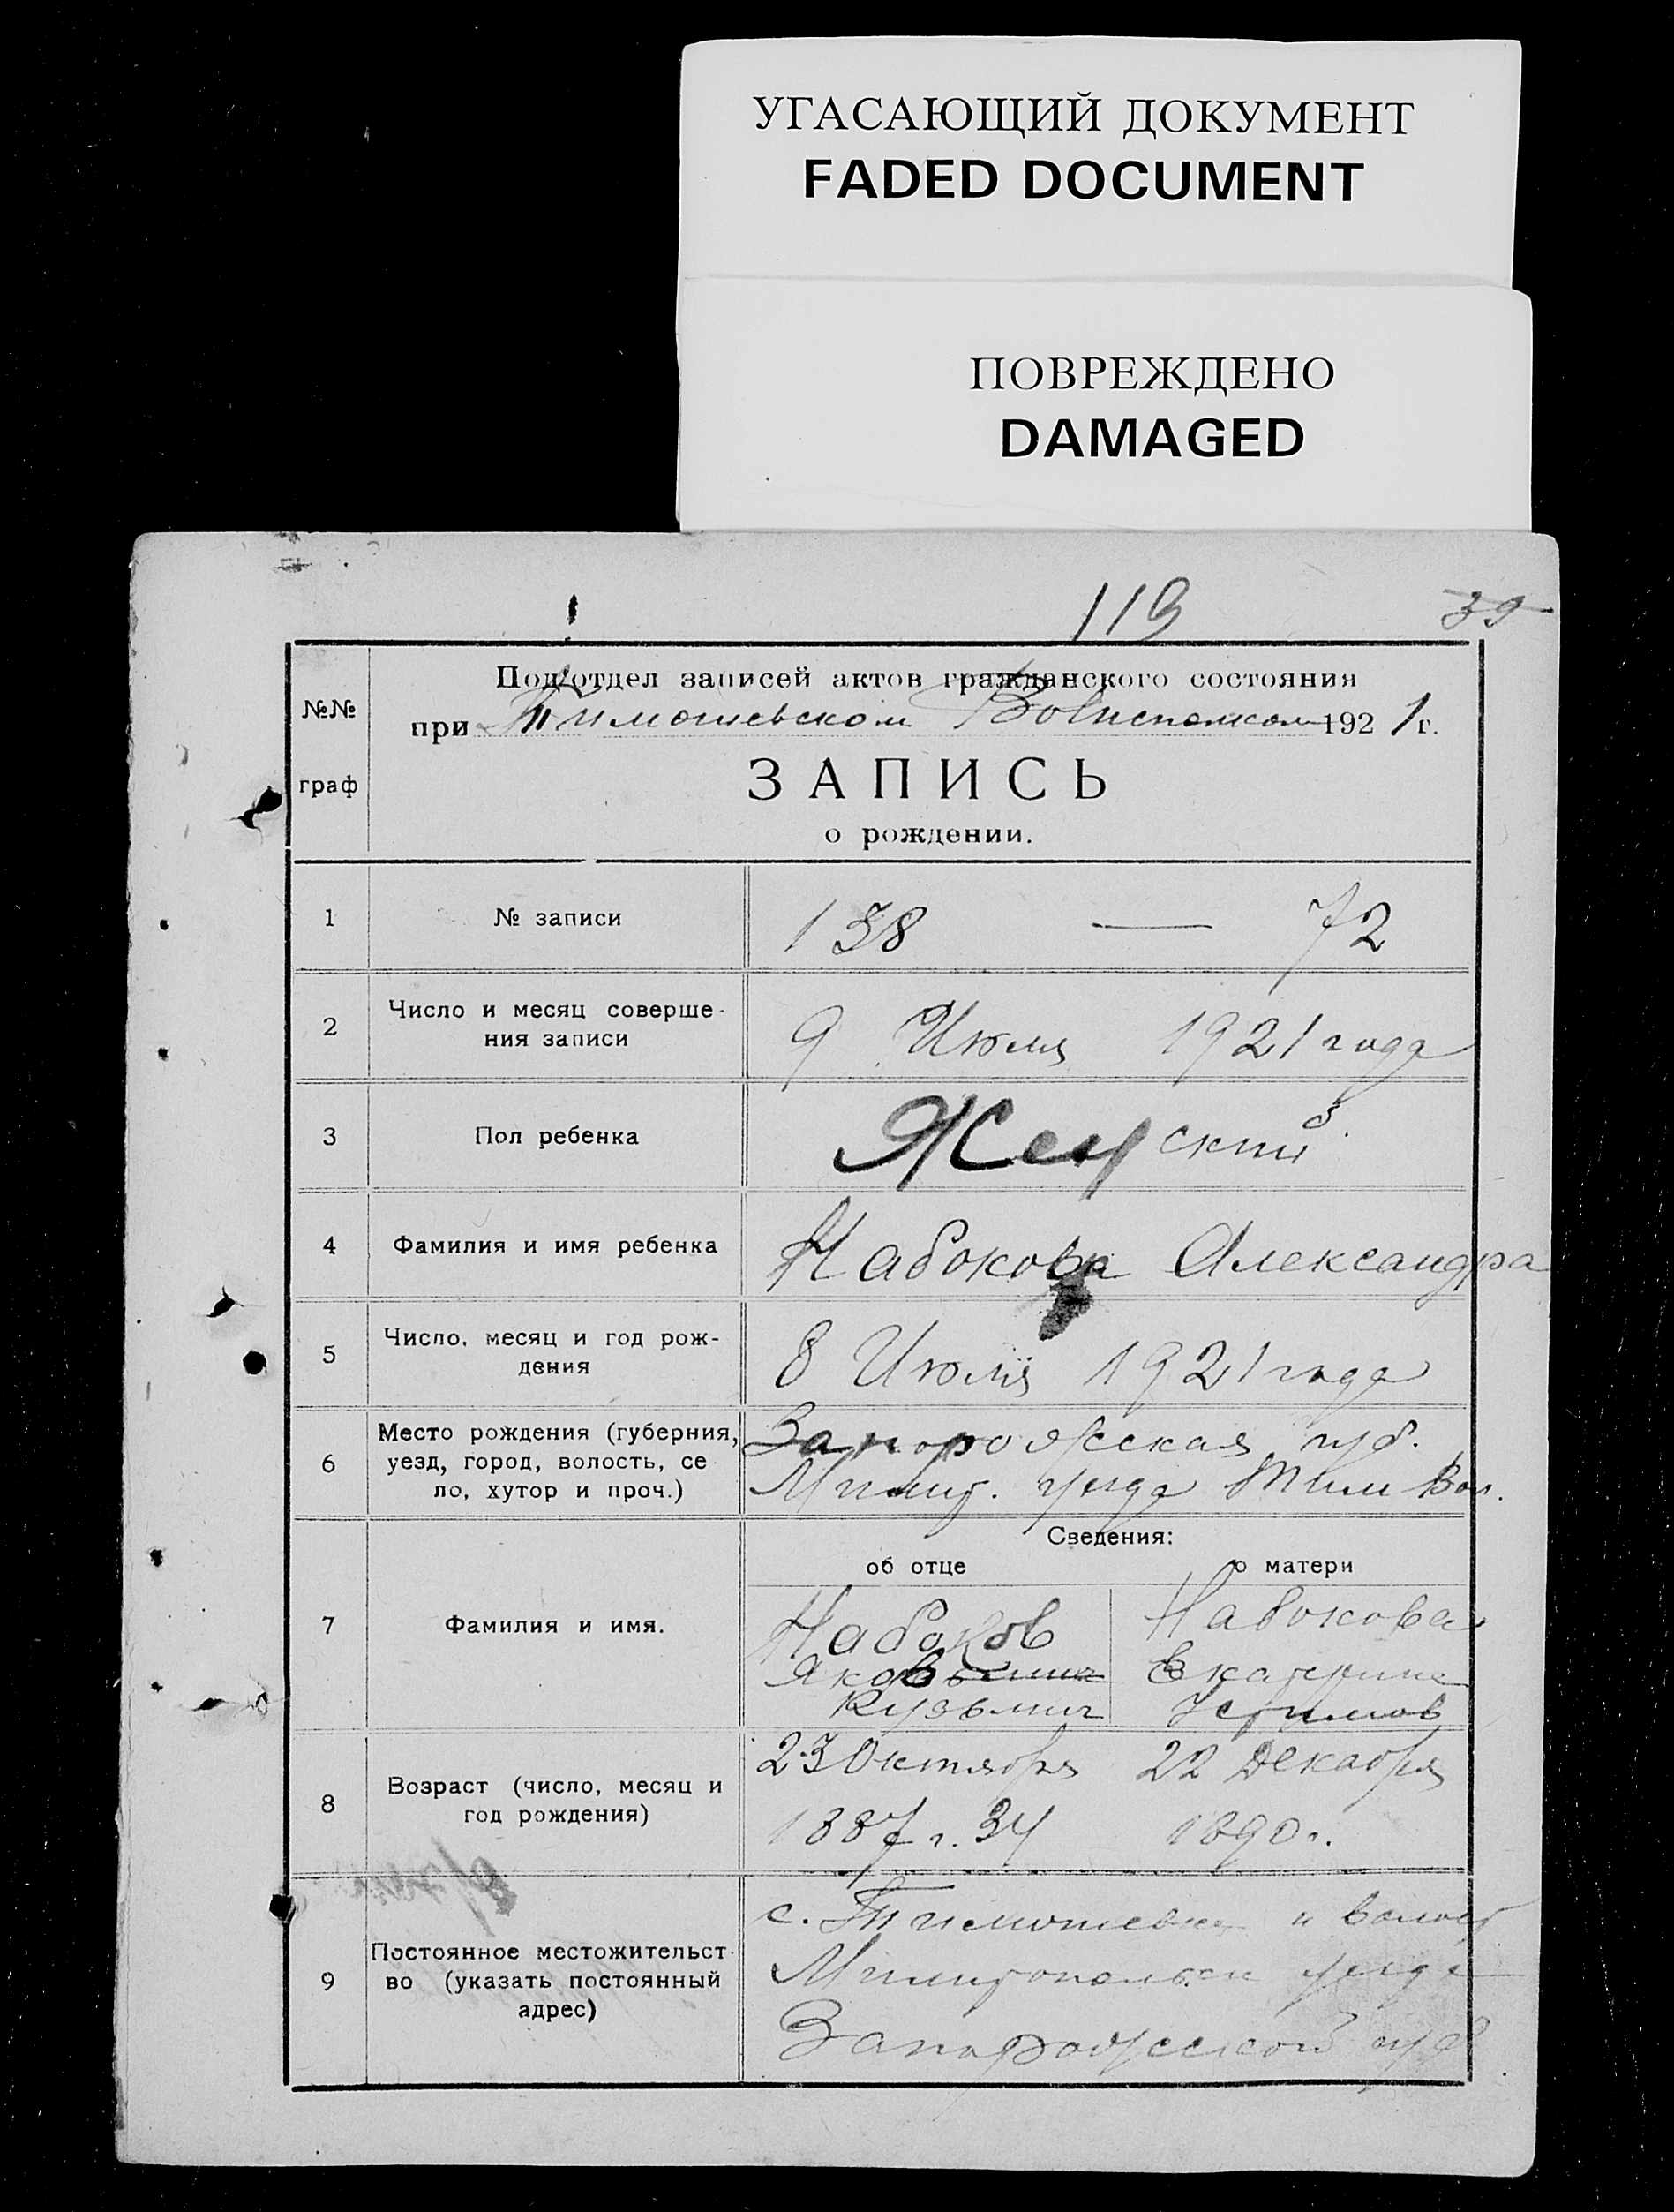 УГАСАЮЩИЙ ДОКУМЕНТ
FADED DOCUMENT
ПОВРЕЖДЕНО
DAMAGED
119 39
Под'отдел записей актов гражданского состояния
№№
при Тимошевском Волисполком 1921 г.
граф
ЗАПИСЬ
о рождении.
1 № записи 138 — 72
2 Число и месяц соверше-
ния записи 9 Июля 1921 года
3 Пол ребенка Женский
4 Фамилия и имя ребенка Набокова Александра
5 Число, месяц и год рож-
дения 8 Июля 1921 года
6 Место рождения (губерния, Запорожская губ.
уезд, город, волость, се
ло, хутор и проч.) Мелит. уезда Тим Вол.
Сведения:
об отце о матери
7 Фамилия и имя. Набоков Набокова
Яков Екатерина
Кузьмич
8 Возраст (число, месяц и
год рождения) 23 Октября 22 Декабря
1887 г. 34 1890 г.
9 Постоянное местожительст
во (указать постоянный
адрес) с. Тимошевка и волост
Мелитопольск уезда
Запорожской губ